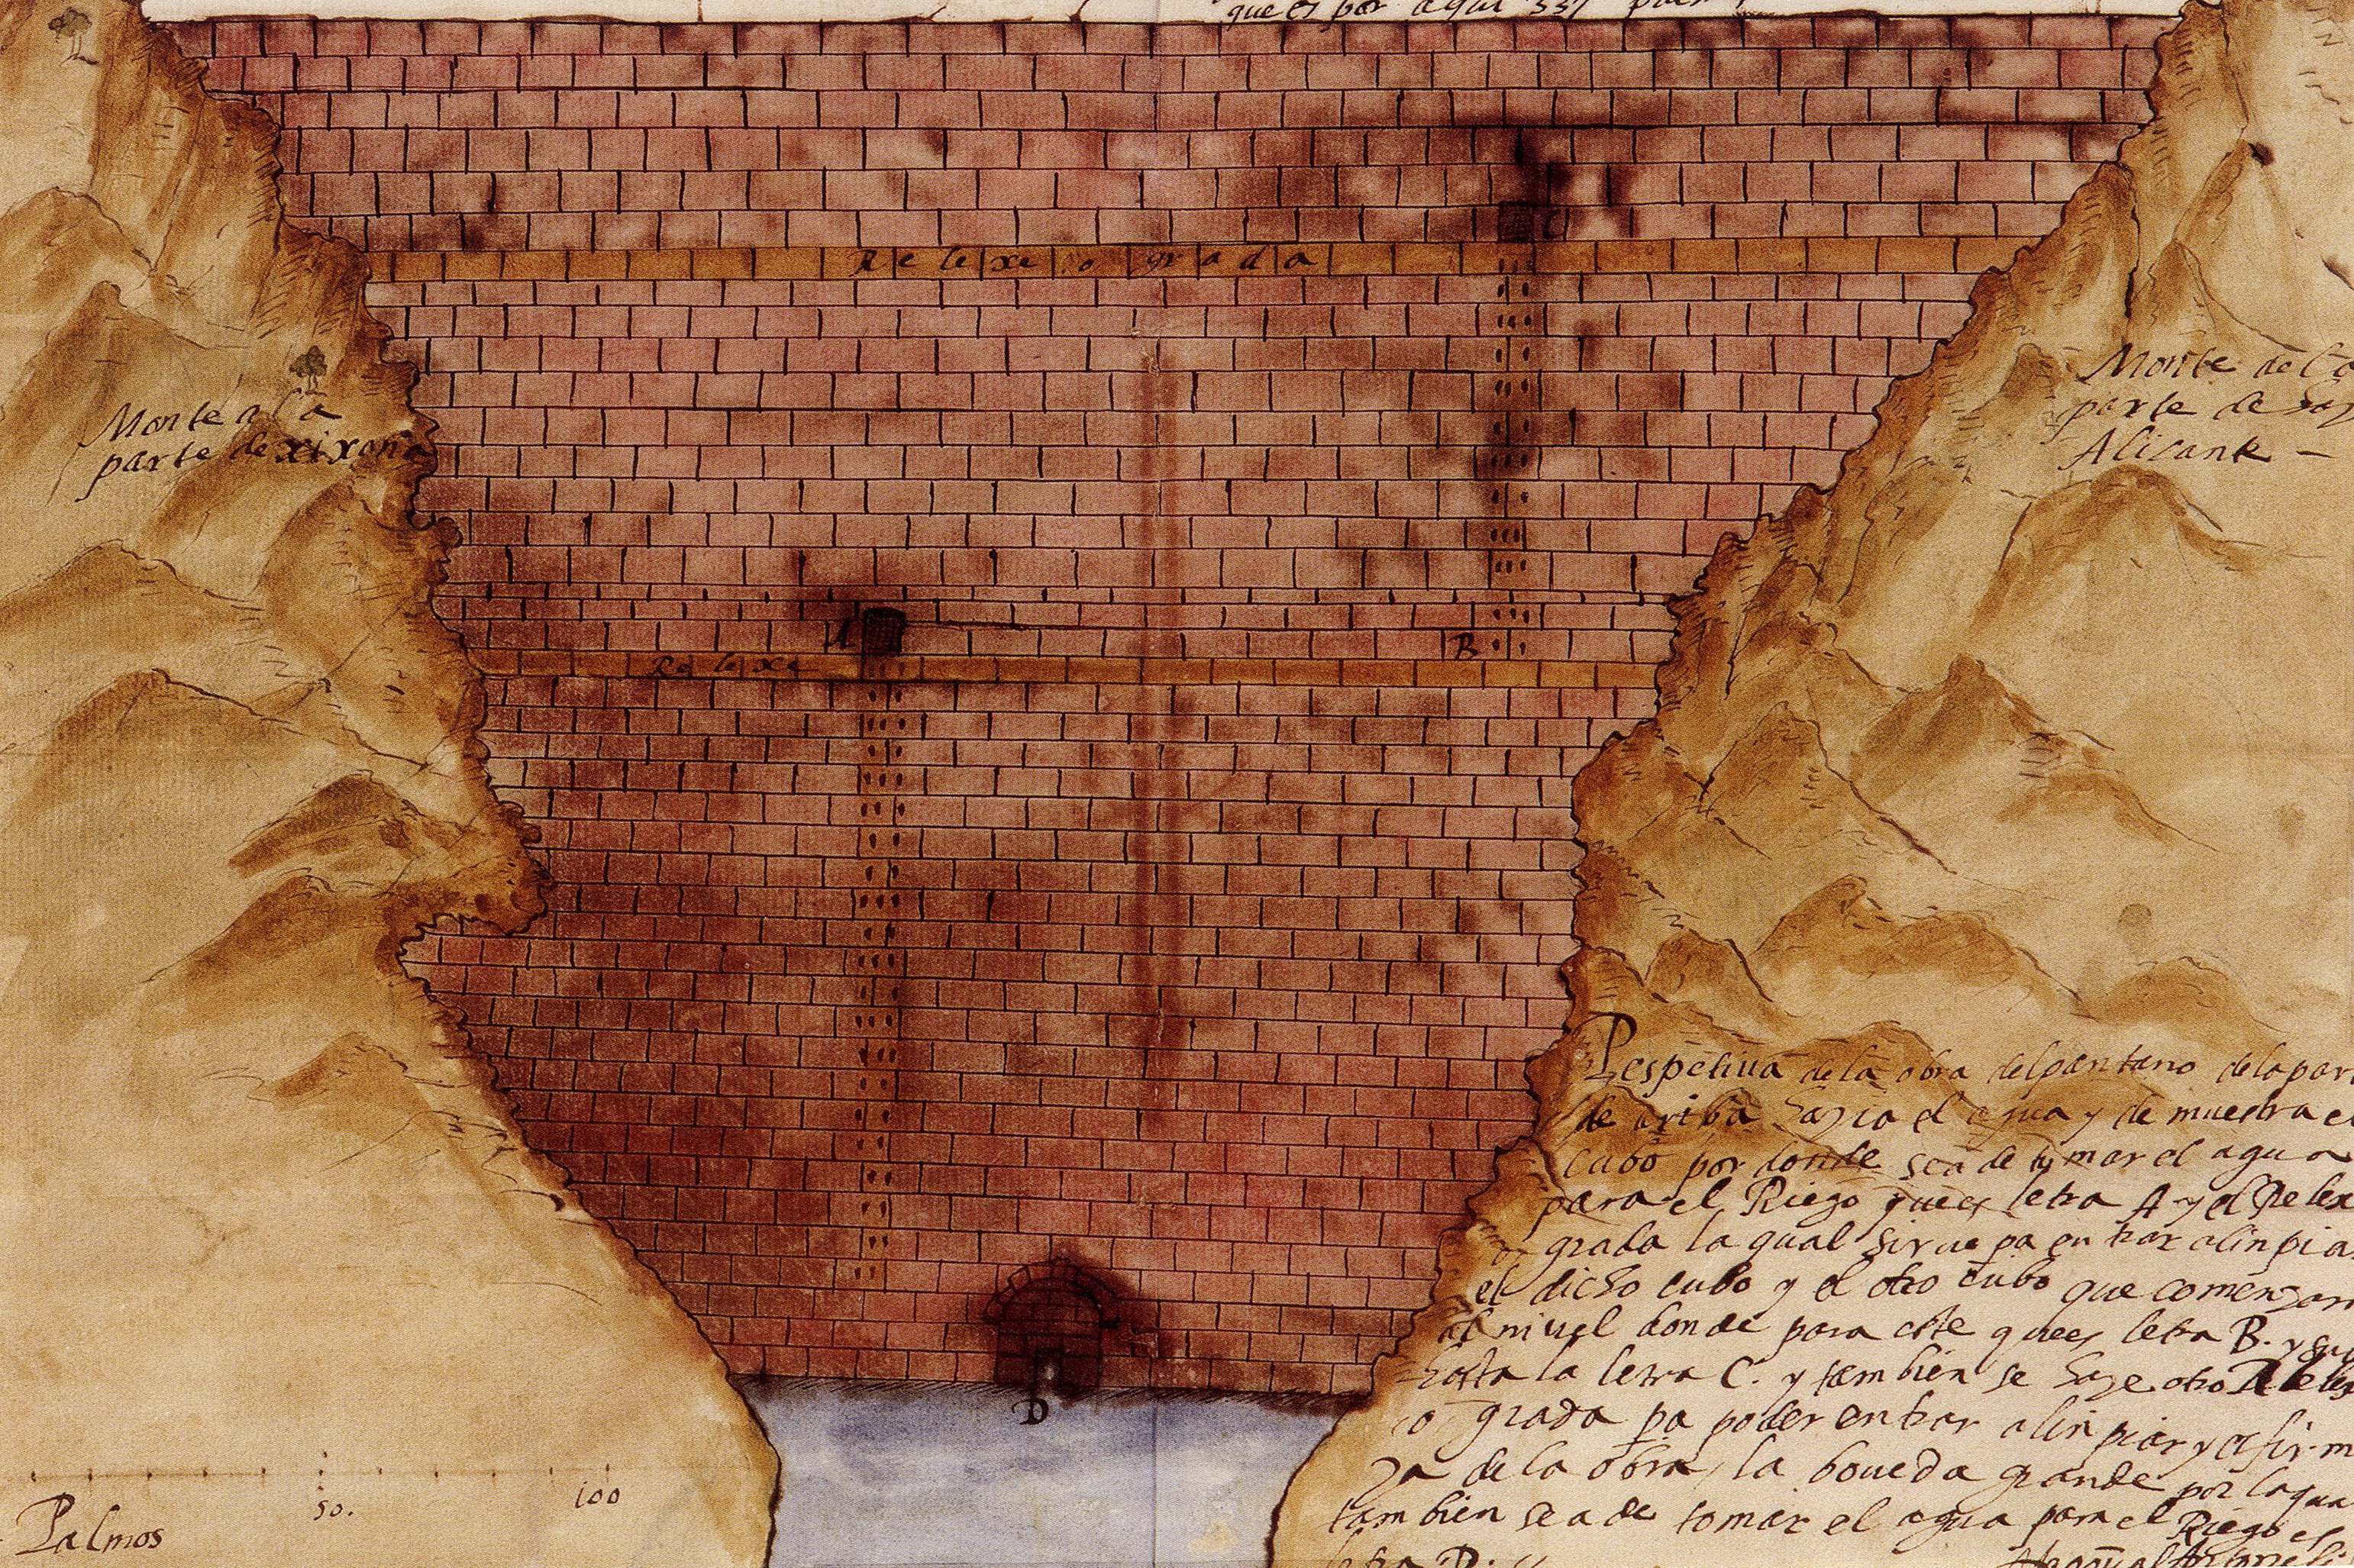 que es por aqui 337 pal
Relexe o grada
Monte a la
parte de xixona
Monte de la
parte de
Alicante –
A
Relexe
B
C
Perspetiua de la obra del pantano de la par
de ariba hazia el agua y demuestra el
cubo por donde sea de tomar el agua
para el Riego ques letra A y el Relex
grada la qual sirue pa entrar alinpiar
el dicho cubo y el otro cubo que comenzar
al niuel donde para este ques letra B. y su
hasta la letra C. y tambien se haze otro Relex
o grada pa poder entrar alinpiar y es firm
za de la obra, la boueda grande por la qua
tambien sea de tomar el agua para el Riego es
letra D.
D
50.
100
Palmos